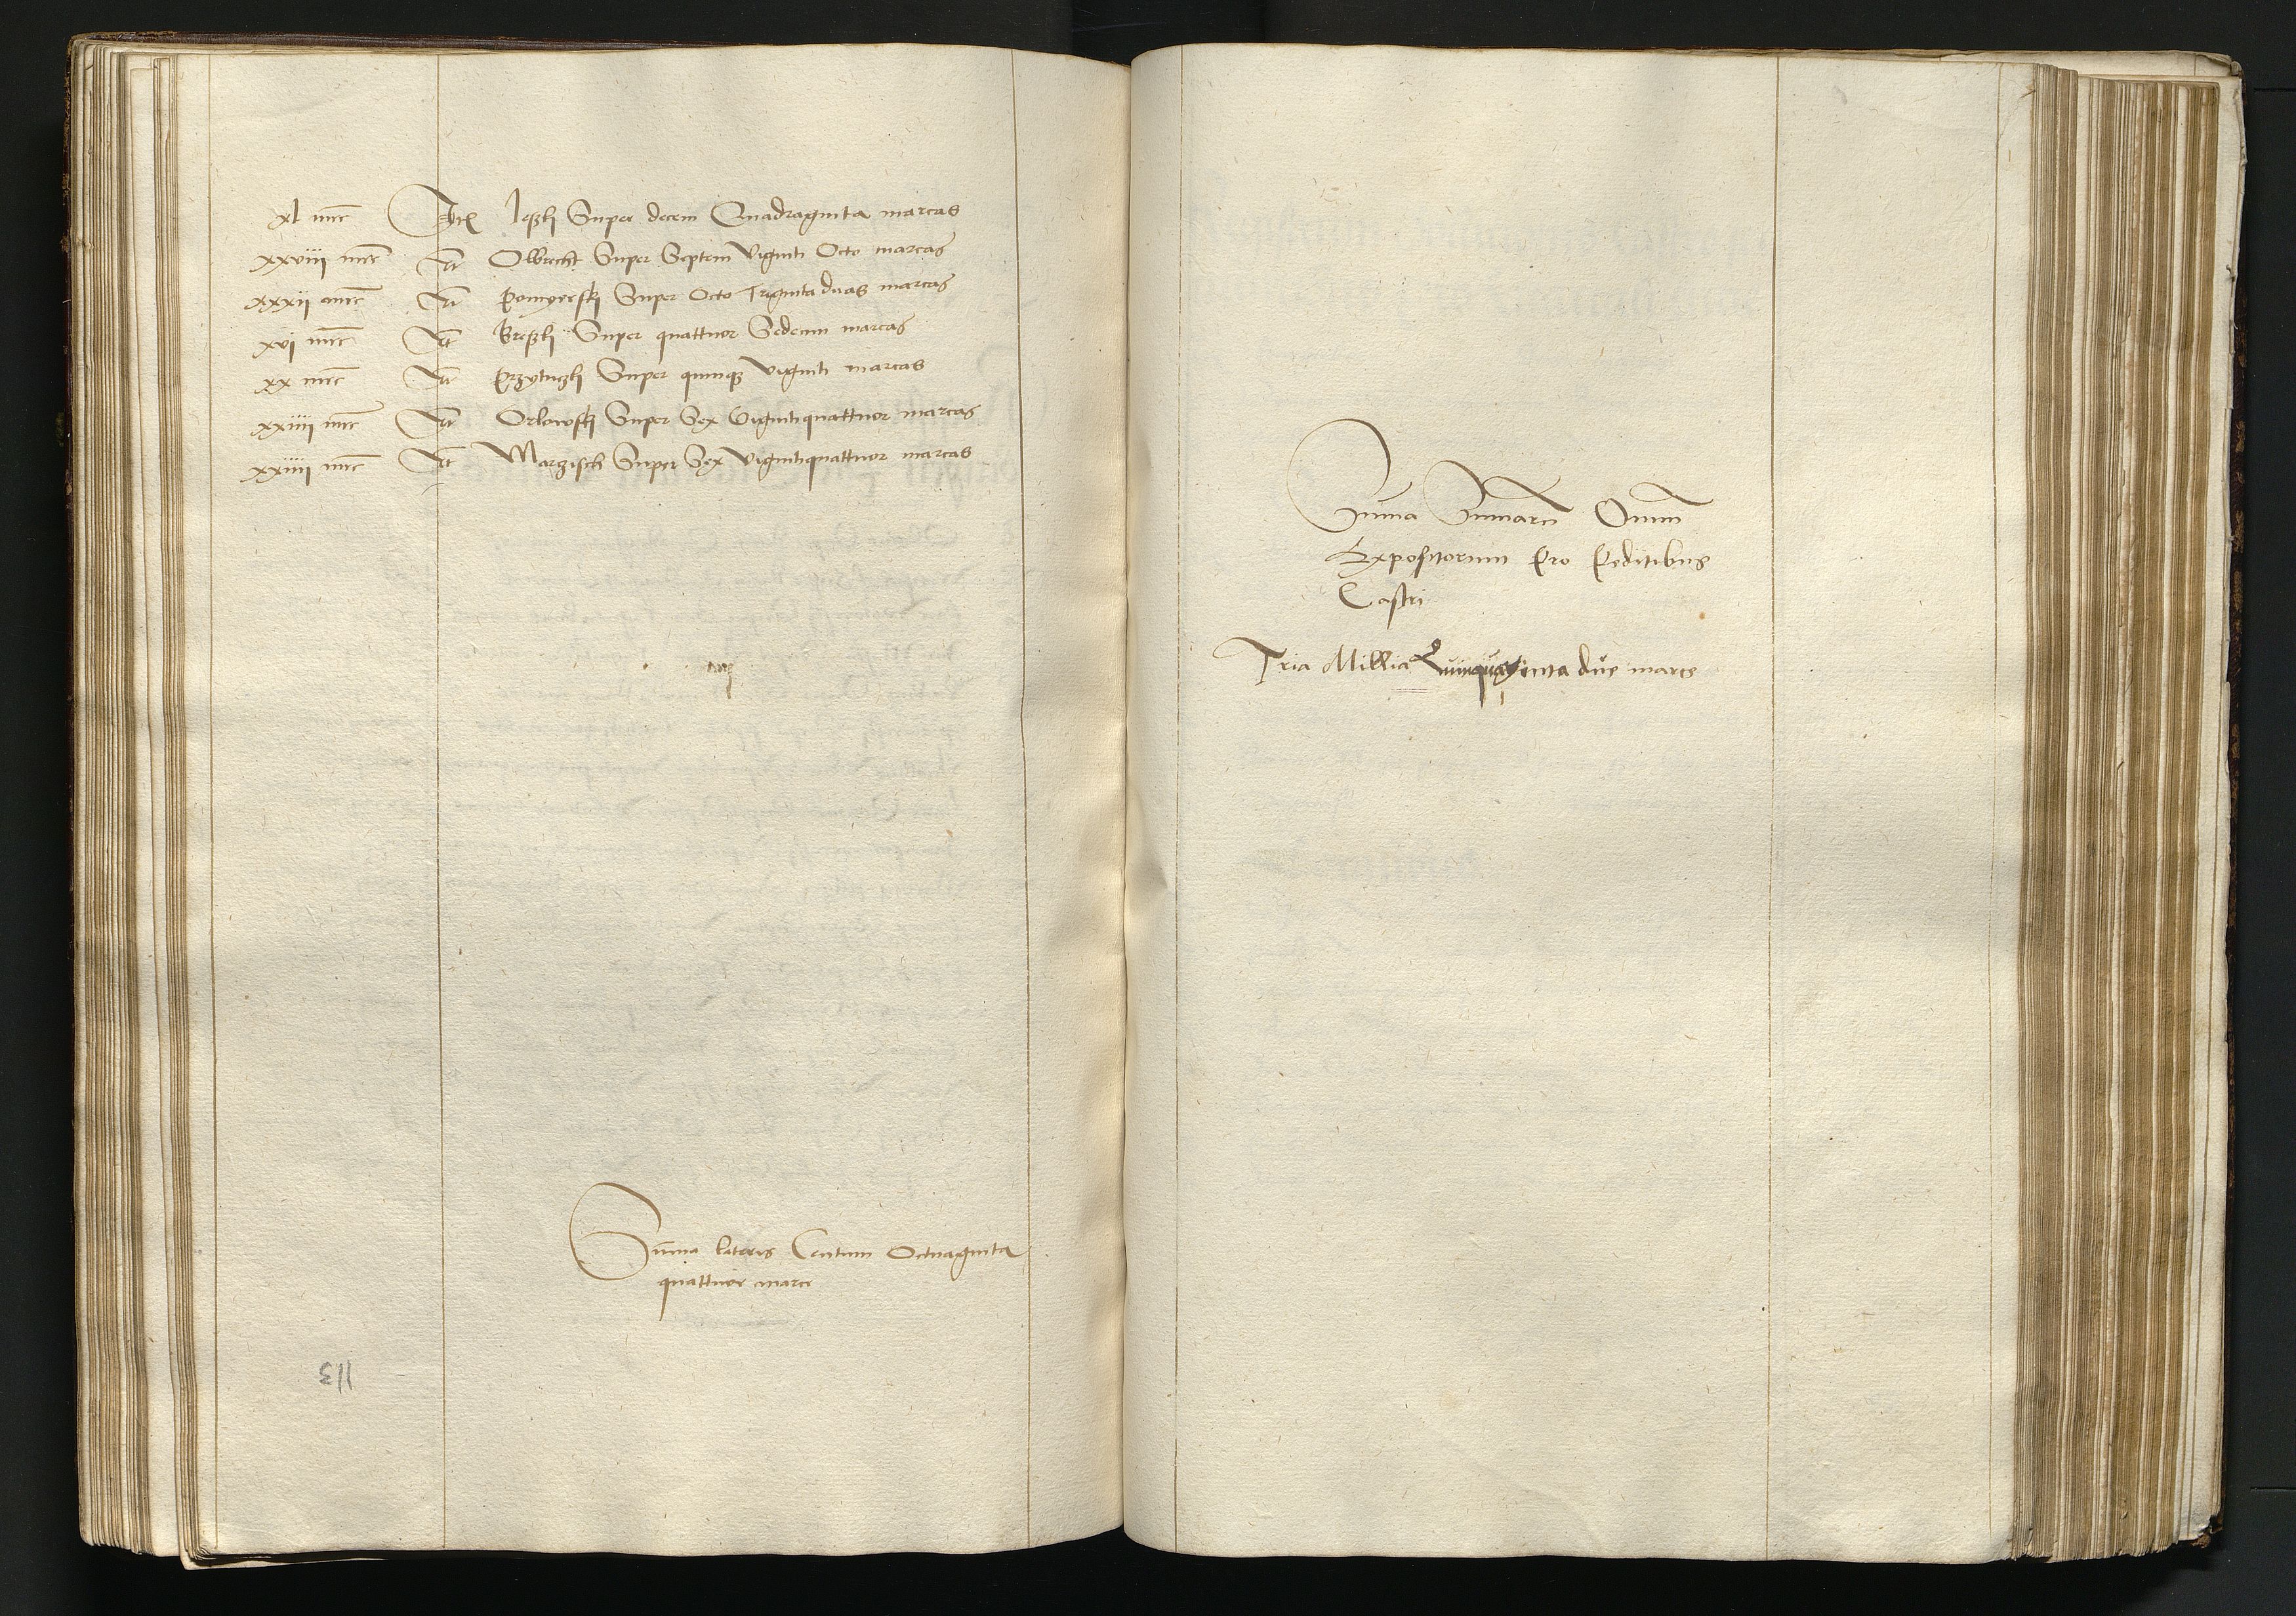 xl mrc Itē Jeszkj Super decem Quadraginta marcas
xxviii mrc It Olbrecht Super Septem Viginti Octo marcas
xxxii mrc It Pomyerskj Super Octo Triginta duas marcas
xvi mrc It Super quattuor Sedecim marcas
xx mrc It Super quinqꝫ Viginti marcas
xxiiii mrc It Orlowskj Super Sex Vigintiquattuor marcas
xxiiii mrc It Marzisch Super Sex Vigintiquattuor marcas
Suma lateris Centum Octuaginta
quattuor marce
113
Suma Sumarū Omnīū
Expositorum Pro Peditibus
Castri
Tria Millia Quinquaginta due marce